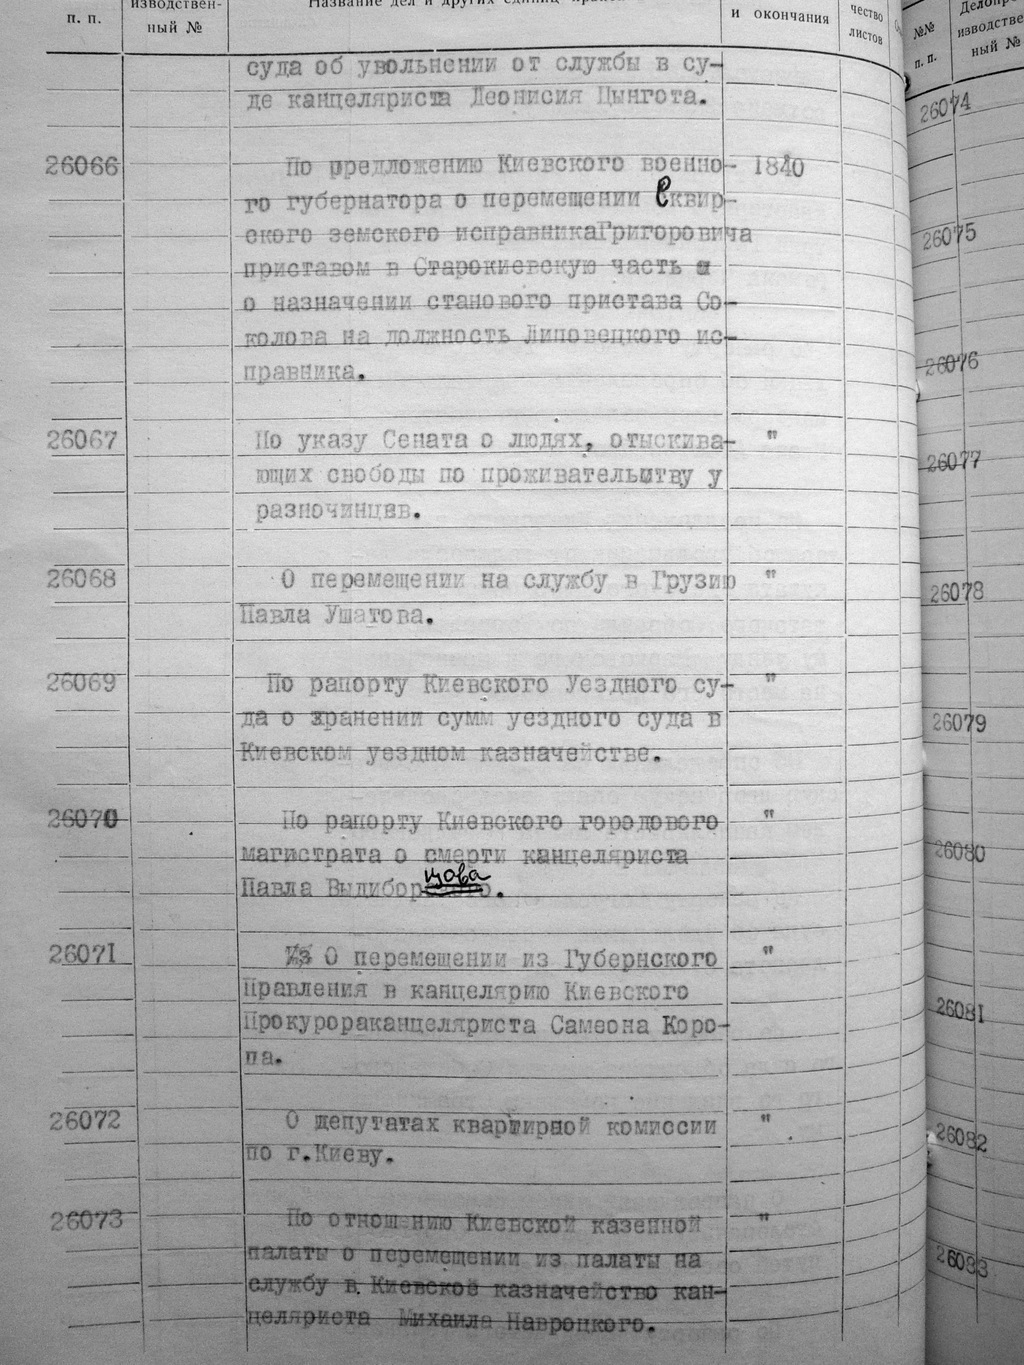 п. п.
изводствен-
ный №
Название дел и других единиц
и окончания
чество
листов
суда об увольнении от службы в су-
де канцеляриста Леонисия Цынгота.
26066 По предложению Киевского военно- 1840
го губернатора о перемещении Сквир-
ского земского исправникаГригоровича
приставом в Старокиевскую часть и
о назначении станового пристава Со-
колова на должность Липовецкого ис-
правника.
26067 По указу Сената о людях, отыскива- "
ющих свободы по проживательству у
разночинцев.
26068 О перемещении на службу в Грузию "
Павла Ушатова.
26069 По рапорту Киевского Уездного су- "
да о хранении сумм уездного суда в
Киевском уездном казначействе.
26070 По рапорту Киевского городового "
магистрата о смерти канцеляриста
Павла Выдиборцова.
26071 О перемещении из Губернского "
Правления в канцелярию Киевского
Прокурораканцеляриста Самсона Коро-
па.
26072 О депутатах квартирной комиссии "
по г.Киеву.
26073 По отношению Киевской казенной "
палаты о перемещении из палаты на
службу в Киевское казначейство кан-
целяриста Михаила Навроцкого.
№№
п. п.
Делопро
изводстве
ный №
26074
26075
26076
26077
26078
26079
26080
26081
26082
26083